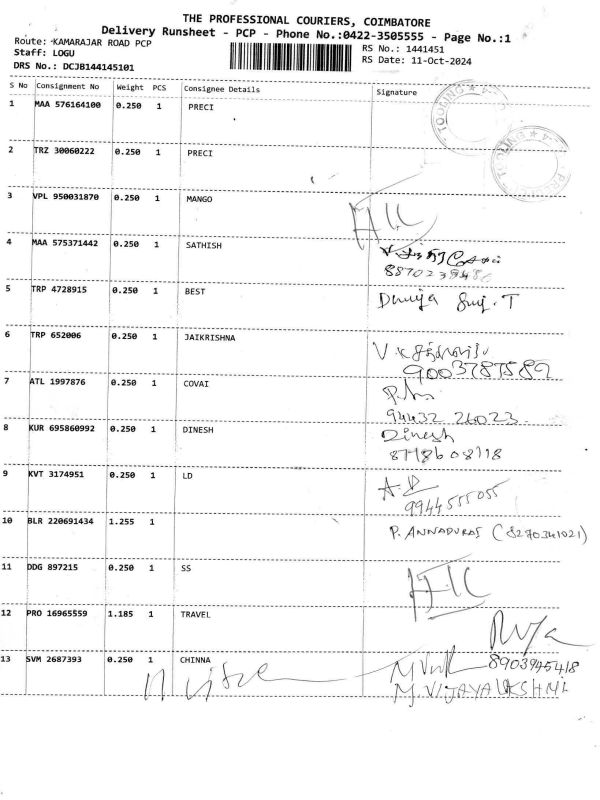 THE PROFESSIONAL COURIERS, COIMBATORE
Delivery Runsheet - PCP - Phone No.:0422-3505555 - Page No.:1
Route: KAMARAJAR ROAD PCP
RS No.: 1441451
Staff: LOGU
RS Date: 11-Oct-2024
DRS No.: DCJB144145101
S No Consignment No Weight PCS Consignee Details Signature
1 MAA 576164100 0.250 1 PRECI
TOOLING
2 TRZ 30060222 0.250 1 PRECI
TOOLING
3 VPL 950031870 0.250 1 MANGO
4 MAA 575371442 0.250 1 SATHISH
5 TRP 4728915 0.250 1 BEST
6 TRP 652006 0.250 1 JAIKRISHNA
9003787589
7 ATL 1997876 0.250 1 COVAI
94432 26023
8 KUR 695860992 0.250 1 DINESH Dinesh
9 KVT 3174951 0.250 1 LD
9944555055
10 BLR 220691434 1.255 1 P. ANNADURAI (8270341021)
11 DDG 897215 0.250 1 SS
12 PRO 16965559 1.185 1 TRAVEL
13 SVM 2687393 0.250 1 CHINNA 8903945418
M. VIJAYALAKSHMI